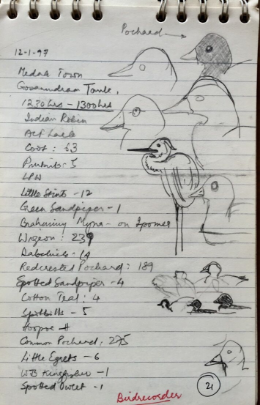 Pochard
12-1-97
Medak Town
Government Tank,
1230hrs - 1300hrs
Indian Robin
Coot : 63
Little Stints - 12
Green Sandpiper - 1
Brahminy Myna - on Ipomea
Wigeon : 239
Dabchick - 14
Redcrested Pochard : 189
Spotted Sandpiper - 4
Cotton Teal : 4
Spotbills - 5
Hoopoe
Common Pochard, 275
Little Egrets - 6
WB Kingfisher - 1
Spotted Owlet - 1
Birdrecorder
21